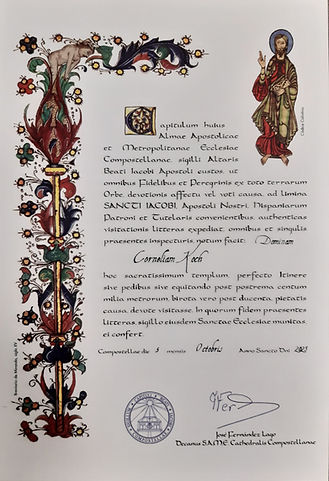 Capitulum huius
Almae Apostolicae
et Metropolitanae Ecclesiae
Compostellanae, sigilli Altaris
Beati Iacobi Apostoli custos, ut
omnibus Fidelibus et Peregrinis ex toto terrarum
Orbe, devotionis affectu vel voti causa, ad limina
SANCTI IACOBI, Apostoli Nostri, Hispaniarum
Patroni et Tutelaris convenientibus, authenticas
visitationis litteras expediat, omnibus et singulis
praesentes inspecturis, notum facit: Dominam
Corneliam Koch
hoc sacratissimum templum, perfecto Itinere
sive pedibus sive equitando post postrema centum
milia metrorum, birota vero post ducenta, pietatis
causa, devote visitasse. In quorum fidem praesentes
litteras, sigillo eiusdem Sanctae Ecclesiae munitas,
ei confert.
Compostellae die 5 mensis Octobris Anno Sancto Dni 2021
José Fernández Lago
Decanus S.A.M.E. Cathedralis Compostellanae
Codex Calixtinus